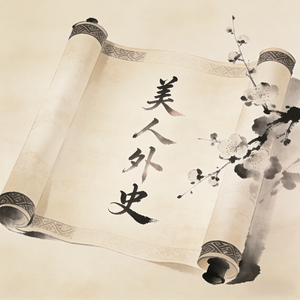 美人外史